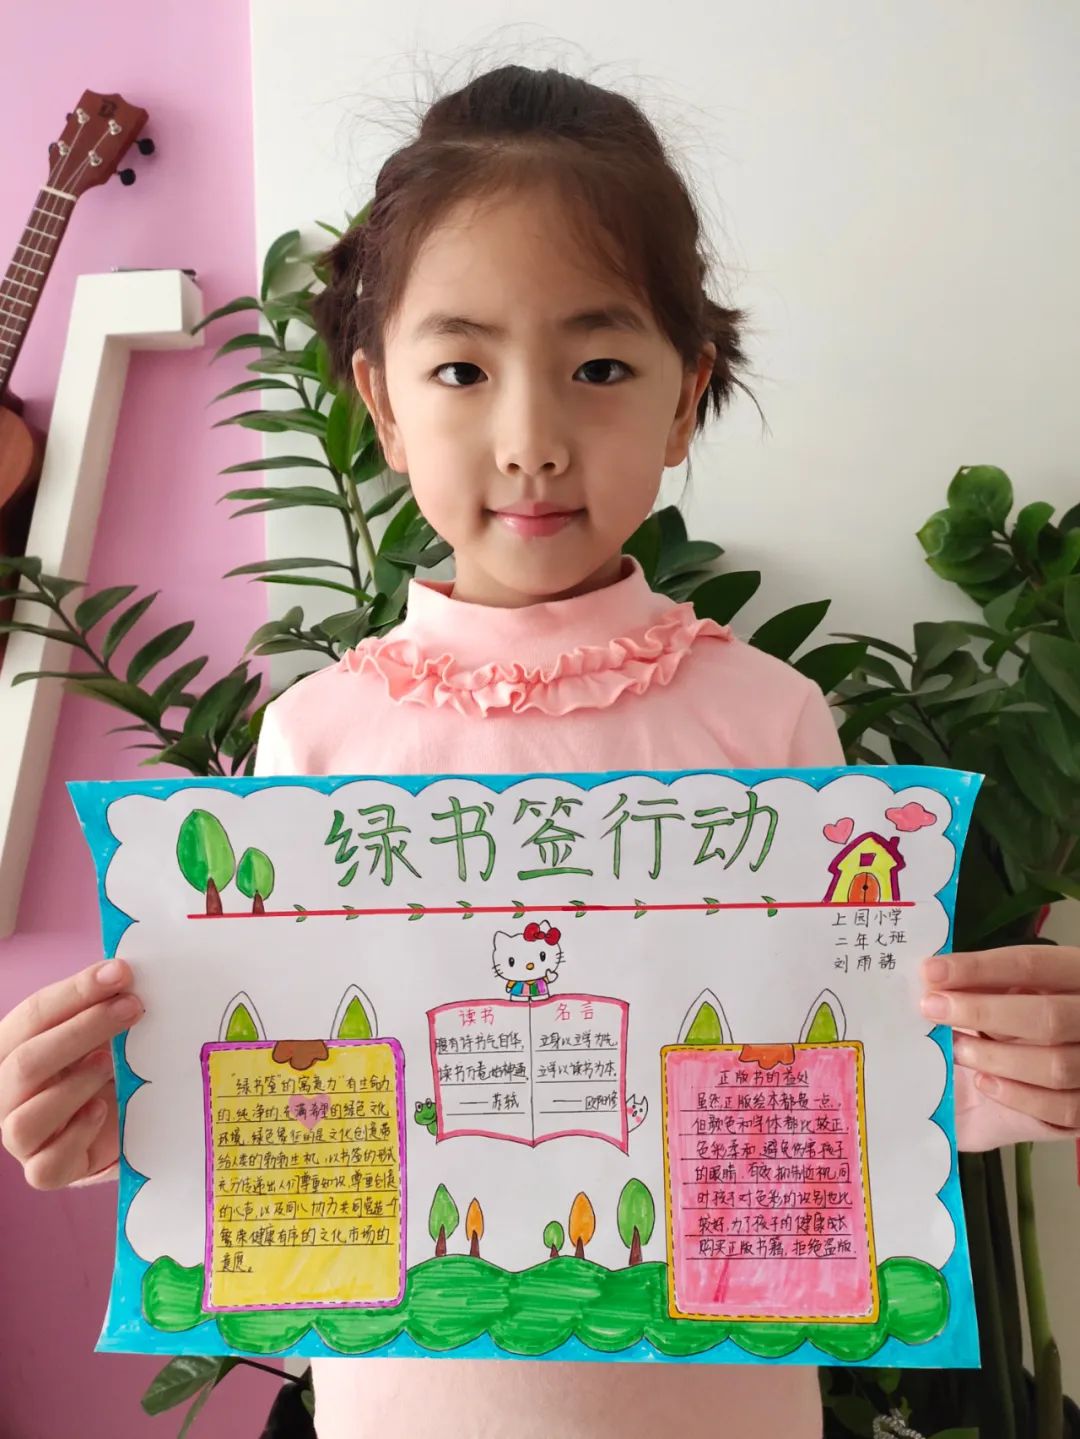 绿书签行动
上园小学
二年七班
刘雨諾
读书
名言
腹有诗书气自华,
读书万卷始神通。
——苏轼
立身以立学为先,
立学以读书为本。
——欧阳修
"绿书签的寓意为"有生命力
的、纯净的、充满希望的绿色文化
环境,绿色象征的是文化创造带
给人类的勃勃生机,以书签的形式
充分传递出人们尊重知识、尊重创造
的心声,以及同心协力共同营造一个
繁荣健康有序的文化市场的
意愿。
正版书的益处
虽然正版绘本都贵一点,
但颜色和字体都比较正,
色彩柔和,避免伤害孩子
的眼睛。有效抑制近视,同
时孩子对色彩的识别也比
较好,为了孩子的健康成长
购买正版书籍,拒绝盗版.